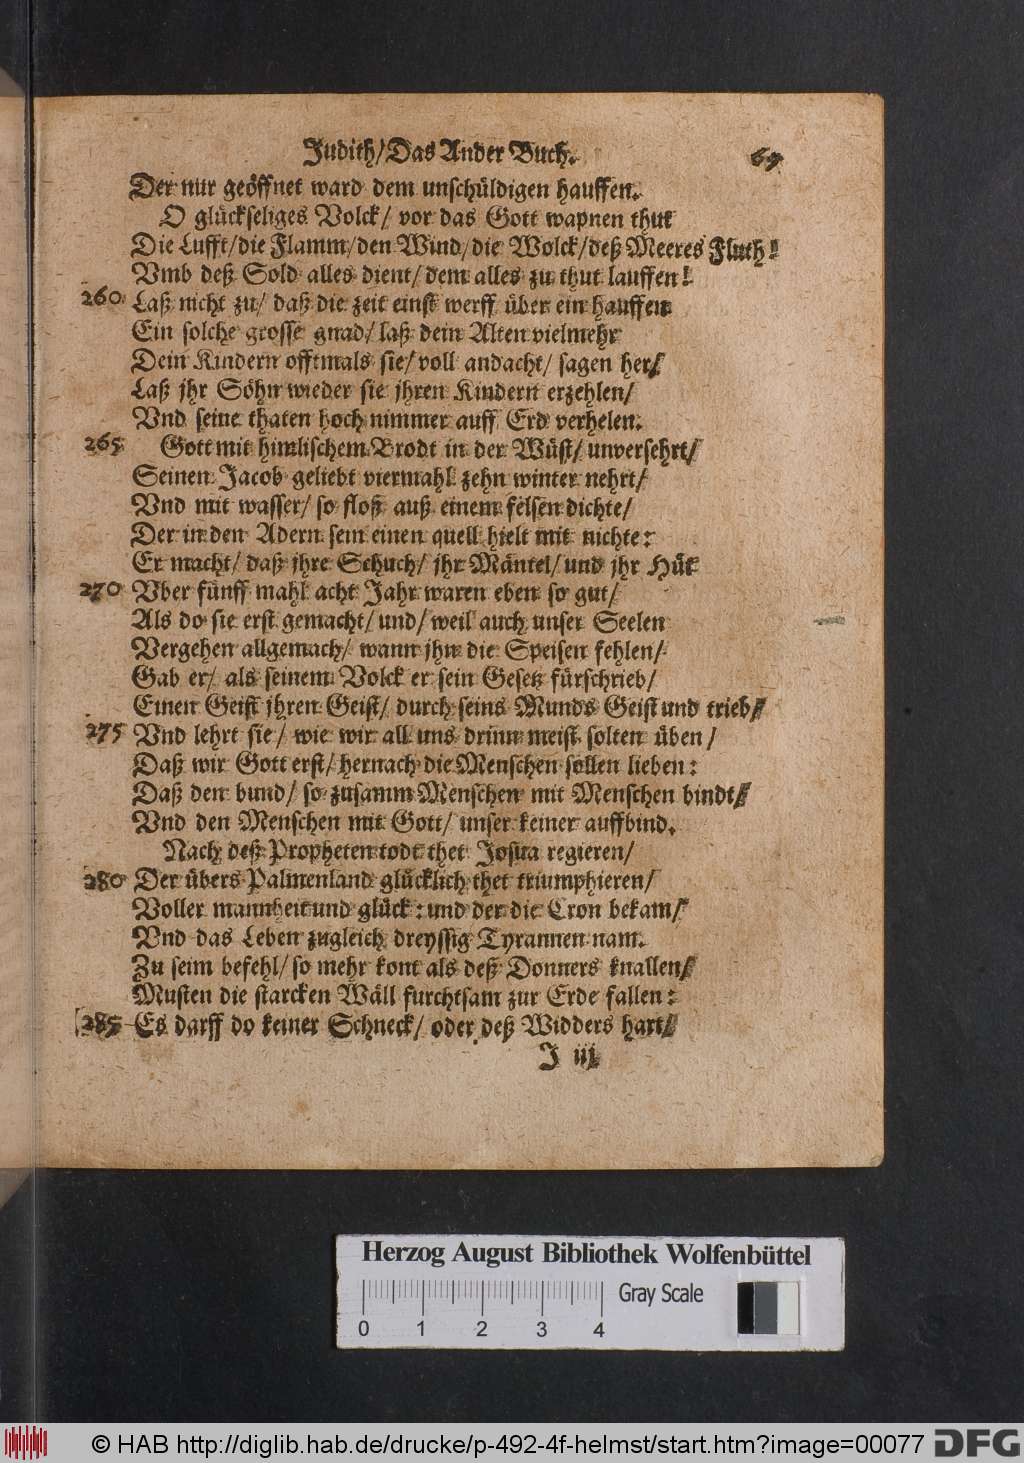 Judith/ Das Ander Buch. 69
Der nur geöffnet ward dem unschüldigen hauffen.
O glückseliges Volck/ vor das Gott wapnen thut
Die Lufft/ die Flamm/ den Wind/ die Wolck/ deß Meeres Fluth!
Vmb deß Sold alles dient/ dem alles zu thut lauffen!
260 Laß nicht zu/ daß die zeit einst werff über ein hauffen
Ein solche grosse gnad/ laß dein Alten vielmehr
Dein Kindern offtmals sie/ voll andacht/ sagen her/
Laß jhr Söhn wieder sie jhren Kindern erzehlen/
Vnd seine thaten hoch nimmer auff Erd verhelen.
265 Gott mit himlischem Brodt in der Wüst/ unversehrt/
Seinen Jacob geliebt viermahl zehn winter nehrt/
Vnd mit wasser/ so floß auß einem felsen dichte/
Der in den Adern sein einen quell hielt mit nichte:
Er macht/ daß jhre Schuch/ jhr Mäntel/ und jhr Hüt
270 Vber fünff mahl acht Jahr waren eben so gut/
Als do sie erst gemacht/ und/ weil auch unser Seelen
Vergehen allgemach/ wann jhn die Speisen fehlen/
Gab er/ als seinem Volck er sein Gesetz fürschrieb/
Einen Geist jhren Geist/ durch seins Munds Geist und trieb/
275 Vnd lehrt sie/ wie wir all uns drinn meist solten üben/
Daß wir Gott erst/ hernach die Menschen sollen lieben:
Daß den bund/ so zusamm Menschen mit Menschen bindt/
Vnd den Menschen mit Gott/ unser keiner auffbind.
Nach deß Propheten todt thet Josua regieren/
280 Der übers Palmenland glücklich thet triumphieren/
Voller mannheit und glück: und der die Cron bekam/
Vnd das Leben zugleich dreyssig Tyrannen nam.
Zu seim befehl/ so mehr kont als deß Donners knallen/
Musten die starcken Wäll furchtsam zur Erde fallen:
285 Es darff do keiner Schneck/ oder deß Widders hart/
J iij
Herzog August Bibliothek Wolfenbüttel
Gray Scale
0 1 2 3 4
© HAB http://diglib.hab.de/drucke/p-492-4f-helmst/start.htm?image=00077 DFG